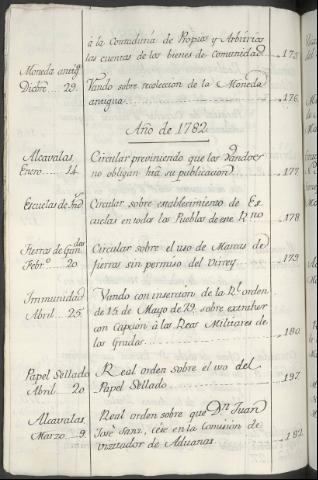 à la Contaduria de Propios y Arbitrios
las cuentas de los bienes de Comunidad 175
Moneda antig.
Dicbre. 29. Vando sobre recoleccion de la Moneda
antigua 176
Año de 1782
Alcavalas Circular previniendo que los Vandos
Enero 14 no obligan htã su publicacion 177
Escuelas de Ind Circular sobre establecimiento de Es
cuelas en todos los Pueblos de este Rno 178
Fierros de Gandos Circular sobre el uso de Marcas de
Febro. 20 fierros sin permiso del Virrey 179
Immunidad Vando con insercion de la Rl. orden
Abril 25 de 15 de Mayo de 79 sobre extraher
con Caucion à los Reos Militares de
los Grados 180
Papel Sellado Real orden sobre el uso del
Abril 20 Papel Sellado 197
Alcavalas Real orden sobre que Dn. Juan
Marzo 9 José Sanz, cese en la Comision de
vizitador de Aduanas 182